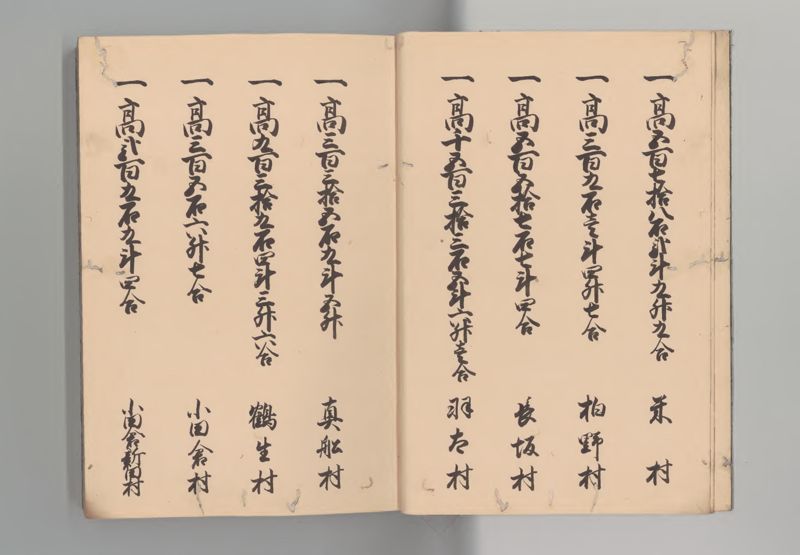 一高五百七拾八石弐斗九升九合 米村
一高三百九石壱斗四升七合 柏野村
一高五百五拾七石七斗四合 長坂村
一高千五百三拾三石五斗六升壱合 羽太村
一高三百三拾五石九斗五升 真船村
一高九百三拾九石四斗三升六合 鶴生村
一高三百五石六升七合 小田倉村
一高弐百九石九斗四合 小田倉新田村